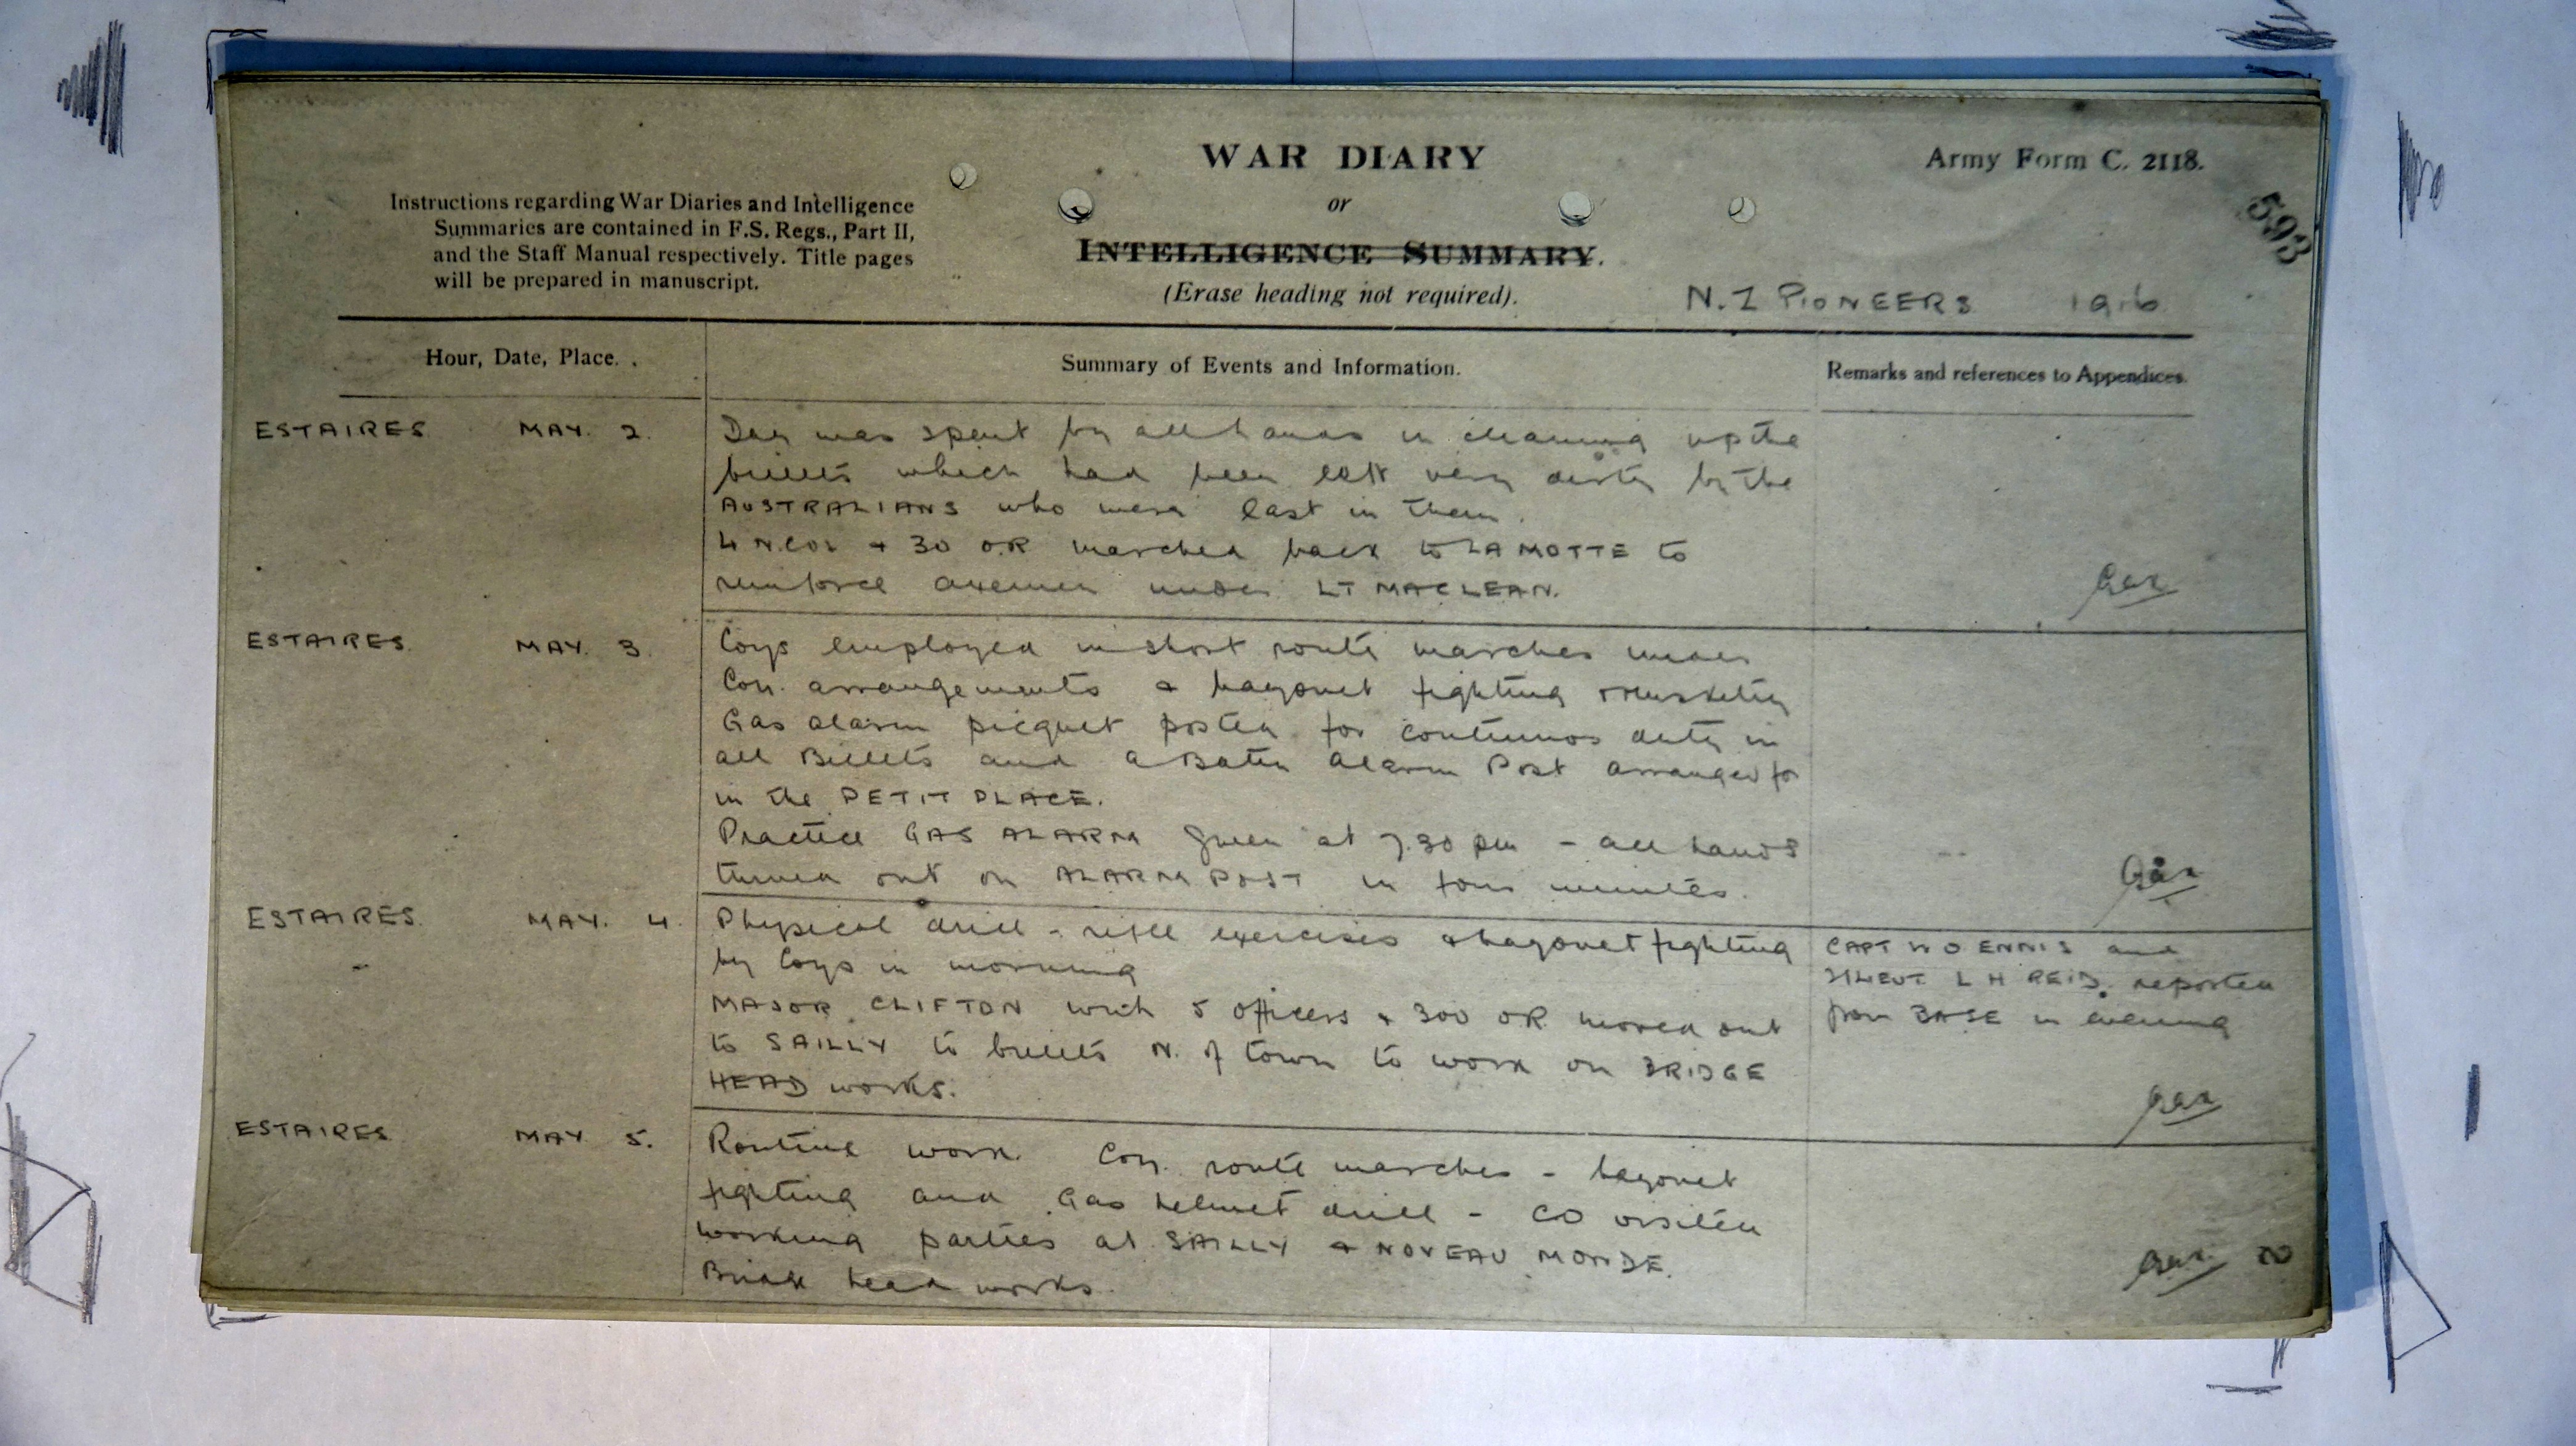 WAR DIARY
or
INTELLIGENCE SUMMARY.
(Erase heading not required).
Army Form C. 2118.
593
Instructions regarding War Diaries and Intelligence
Summaries are contained in F.S. Regs., Part II,
and the Staff Manual respectively. Title pages
will be prepared in manuscript.
N.Z PIONEERS 1916
Hour, Date, Place.
Summary of Events and Information.
Remarks and references to Appendices.
ESTAIRES MAY. 2.
Day was spent by all hands in cleaning up the
billets which had been left very dirty by the
AUSTRALIANS who were last in them.
4 N.COs + 30 O.R marched back to LA MOTTE to
reinforce axemen under LT MACLEAN.
ESTAIRES MAY. 3.
Coys employed in short route marches under
Coy. arrangements & bayonet fighting musketry
Gas alarm picquet posted for continuos duty in
all Billets and a Battn Alarm Post arranged for
in the PETIT PLACE.
Practice GAS ALARM given at 7.30 pm - all hands
turned out on ALARM POST in four minutes.
ESTAIRES MAY. 4.
Physical drill - rifle exercises & bayonet fighting
by Coys in morning
MAJOR CLIFTON with 5 officers + 300 OR moved out
to SAILLY to billets N. of town to work on BRIDGE
HEAD works.
CAPT W O ENNIS and
2/LIEUT L H REID. reported
from BASE in evening
ESTAIRES MAY 5.
Routine work. Coy. route marches - bayonet
fighting and Gas helmet drill - CO visited
working parties at SAILLY & NOVEAU MONDE.
Bridge head works.
2